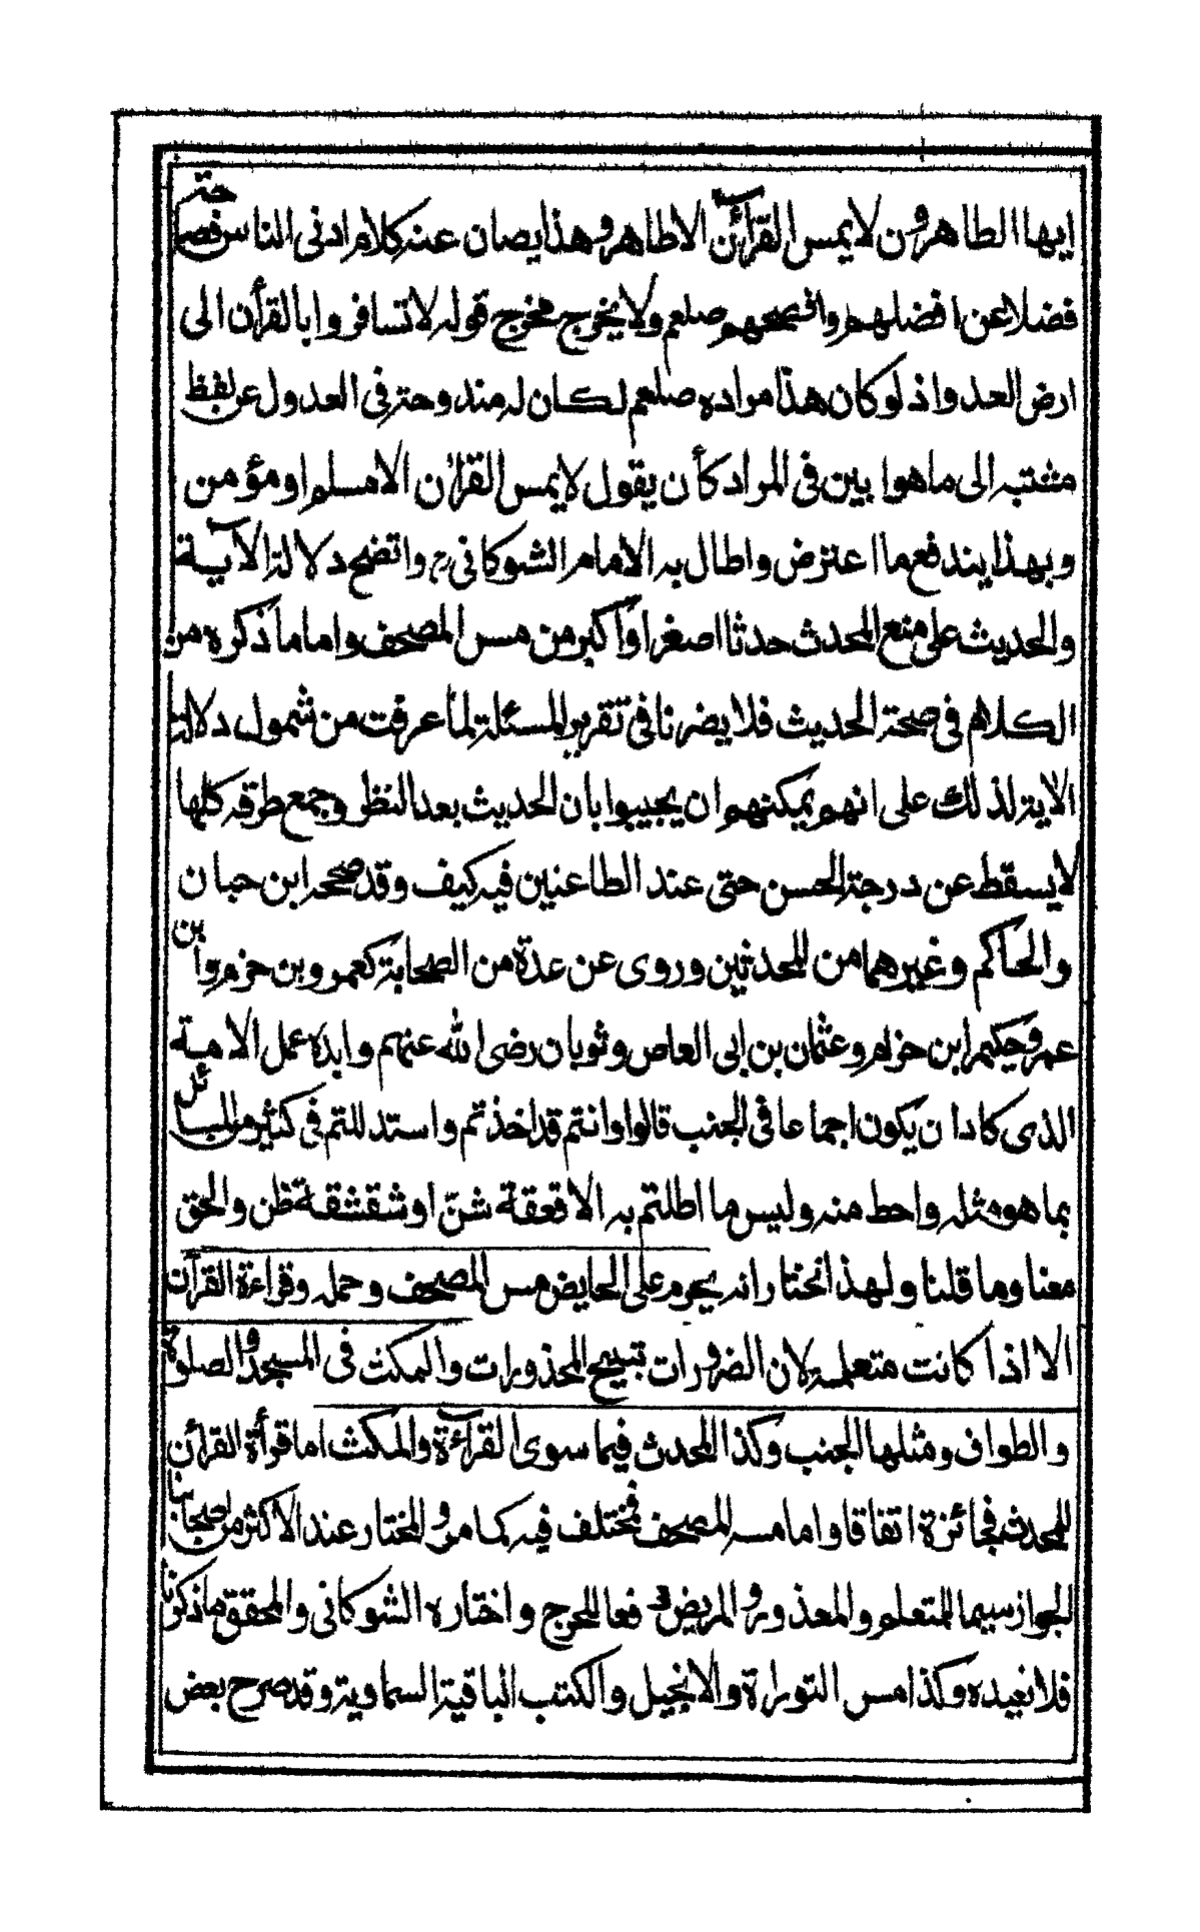 ايها الطاهرون لا يمس القرآن الا طاهر وهذا يصان عنه كلام ادنى الناس فصاحة
فضلا عن افضلهم وافصحهم صلعم ولا يخرج مخرج قوله لا تسافروا بالقرآن الى
ارض العدو اذ لو كان هذا مراده صلعم لكان له مندوحة فى العدول عن لفظ
مشتبه الى ما هو ابين فى المراد كأن يقول لا يمس القرائن الا مسلم او مؤمن
وبهذا يندفع ما اعترض واطال به الامام الشوكانى رح واتضح دلالة الآيـة
والحديث على منع المحدث حدثا اصغرا واكبر من مس المصحف واما ما ذكره من
الكلام فى صحة الحديث فلا يضرنا فى تقرير المسئلة لما عرفت من شمول دلالة
الاية لذلك على انهم يمكنهم ان يجيبوا بان الحديث بعد النظر وجمع طرقه كلها
لا يسقط عن درجة الحسن حتى عند الطاعنين فيه كيف وقد صححه ابن حبان
والحاكم وغيرهما من المحدثين وروى عن عدة من الصحابة كعمرو بن حزم وابن
عمر وحكيم ابن حزام وعثمان بن ابى العاص وثوبان رضى الله عنهم وايده عمل الامة
الذى كاد ان يكون اجماعا فى الجنب قالوا وانتم قد اخذتم واستدللتم فى كثير من المسائل
بما هو مثله واحط منه وليس ما اطلتم به الا قعقة شنّ او شقشقة ظن والحق
معنا وما قلنا ولهذا نختار انه يحرم على الحايض مس المصحف وحمله وقراءة القرآن
الا اذا كانت متعلمة لان الضرورات تبيح المحذورات والمكث فى المسجد والصلوة
والطواف ومثلها الجنب وكذا المحدث فيما سوى القراءة والمكث اما قرأة القرائن
للمحدث فجائزة اتفاقا واما مسه المصحف فمختلف فيه كما مر والمختار عند الاكثر من اصحابنا
الجواز سيما للمتعلم والمعذور والمريض دفعا للحرج واختاره الشوكانى والمحقق ما ذكرنا
فلا نعيده وكذا مس التوراة والانجيل والكتب الباقية السماوية وقد صرح بعض